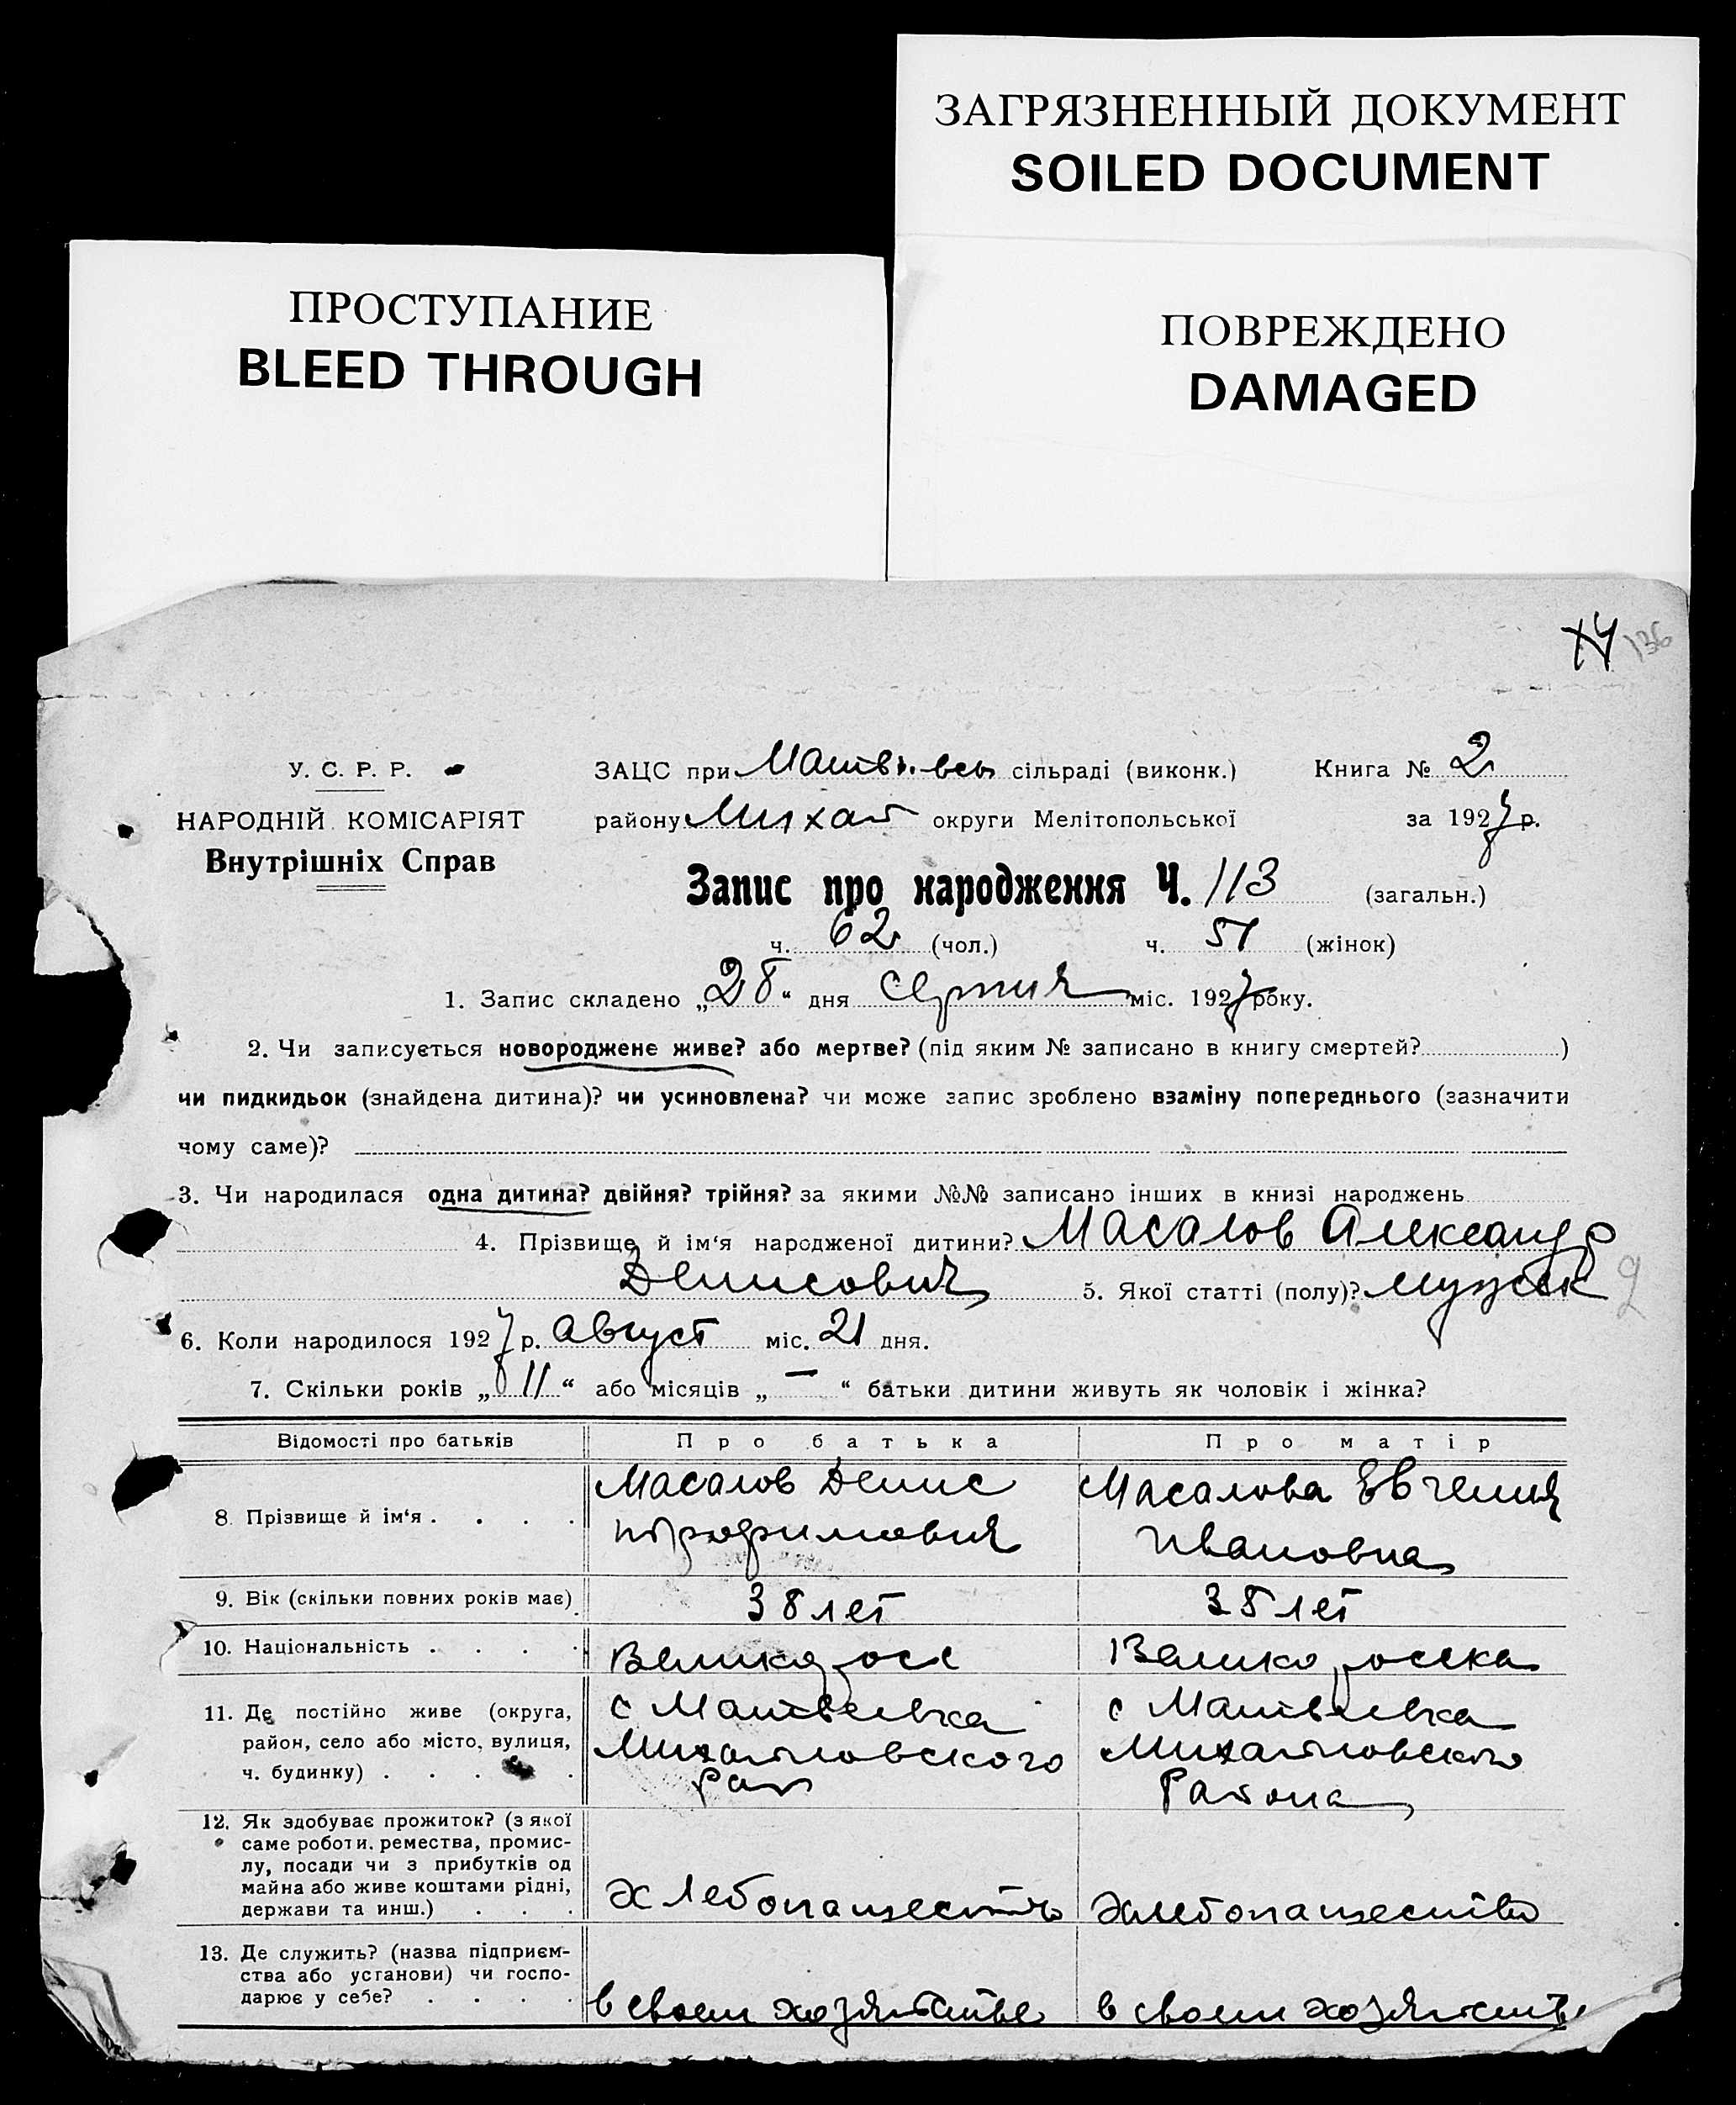 ЗАГРЯЗНЕННЫЙ ДОКУМЕНТ
SOILED DOCUMENT
ПРОСТУПАНИЕ
BLEED THROUGH
ПОВРЕЖДЕНО
DAMAGED
136
У. С. Р. Р.
НАРОДНІЙ КОМІСАРІЯТ
Внутрішніх Справ
ЗАЦС при сільраді (виконк.) Книга № 2
району Михай округи Мелітопольської за 1927 р.
Запис про народження Ч. 113 (загальн.)
ч. 62 (чол.) ч. 51 (жінок)
1. Запис складено „28“ дня серпня міс. 1927 року.
2. Чи записується новороджене живе? або мертве? (під яким № записано в книгу смертей? )
чи пидкидьок (знайдена дитина)? чи усиновлена? чи може запис зроблено взаміну попереднього (зазначити
чому саме)?
3. Чи народилася одна дитина? двійня? трійня? за якими №№ записано інших в книзі народжень
4. Прізвище й ім‘я народженої дитини? Масалов Александр
Денисович 5. Якої статті (полу)? мужск
6. Коли народилося 1927 р. Август міс. 21 дня.
7. Скільки років „ 11 “ або місяців „ — “ батьки дитини живуть як чоловік і жінка?
Відомості про батьків Про батька Про матір
8. Прізвище й ім‘я . . . . Масалов Денис Масалова Евгения
Трофимович Ивановна
9. Вік (скільки повних років має) 38 лет 38 лет
10. Національність . . . . Великоросс Великоросска
11. Де постійно живе (округа, с Матвеевка с Матвеевка
район, село або місто, вулиця, Михайловского Михайловского
ч. будинку) . . . . Рай Района
12. Як здобуває прожиток? (з якої
саме роботи, ремества, промис-
лу, посади чи з прибутків од
майна або живе коштами рідні,
держави та инш.) . . . Хлебопашество Хлебопашество
13. Де служить? (назва підприєм-
ства або установи) чи госпо-
дарює у себе? . . . . в своем хозяйстве в своем хозяйстве